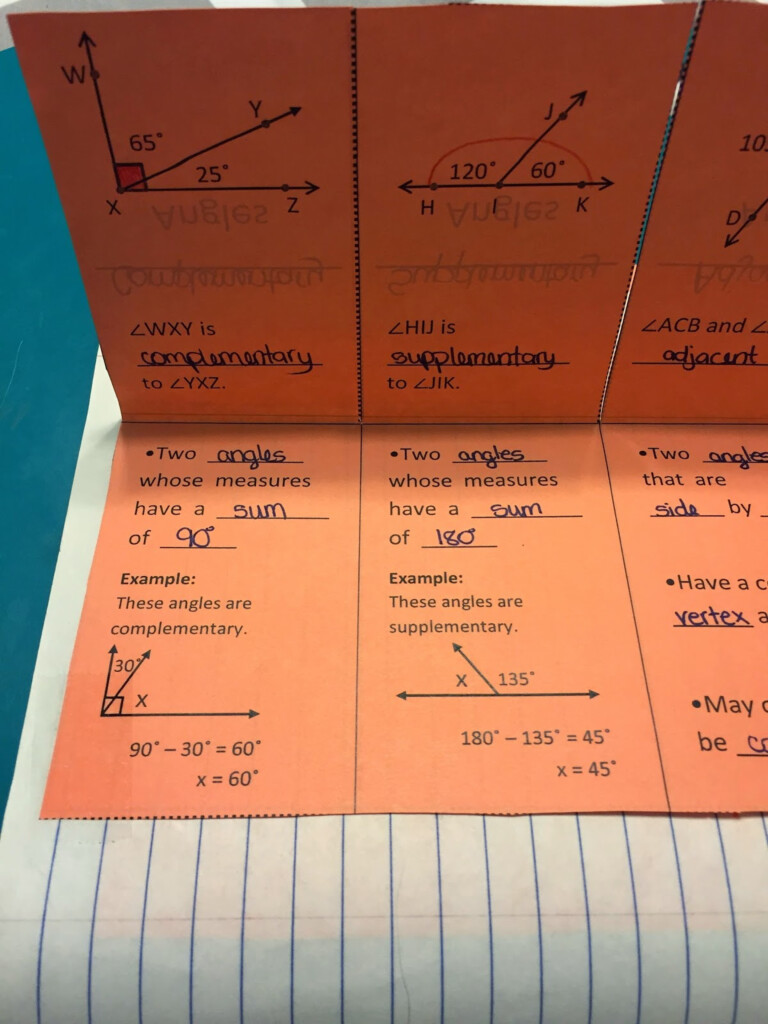 W
Y
65°
25°
X
Z
J
120°
60°
H
I
K
D
Angles
Complementary
Angles
Supplementary
∠WXY is
complementary
to ∠YXZ.
∠HIJ is
supplementary
to ∠JIK.
∠ACB and ∠
adjacent
•Two angles
whose measures
have a sum
of 90°
Example:
These angles are
complementary.
30°
X
90° – 30° = 60°
x = 60°
•Two angles
whose measures
have a sum
of 180°
Example:
These angles are
supplementary.
X
135°
180° – 135° = 45°
x = 45°
•Two angles
that are
side by
•Have a
vertex
•May
be